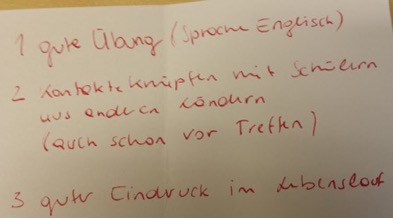 1 gute Übung (Sprache Englisch)
2 Kontakte knüpfen mit Schülern
aus anderen Ländern
(auch schon vor Treffen)
3 guter Eindruck im Lebenslauf